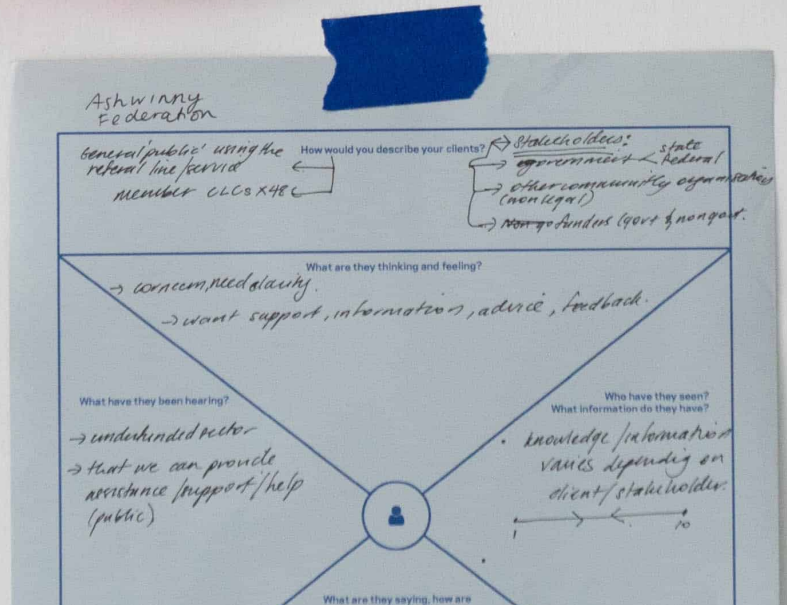 Ashwinny
Federation
How would you describe your clients?
'General public' using the
referal line/service
member CLCs x48
Stakeholders:
government < state
federal
other community organisations
(non legal)
Non go funders (govt & nongovt.
What are they thinking and feeling?
→ concern, need clarity.
→ want support, information, advice, feedback.
What have they been hearing?
→ underfunded sector
→ that we can provide
assistance/support/help
(public)
Who have they seen?
What information do they have?
knowledge/information
varies dependig on
client/stakeholder.
1 10
What are they saying, how are